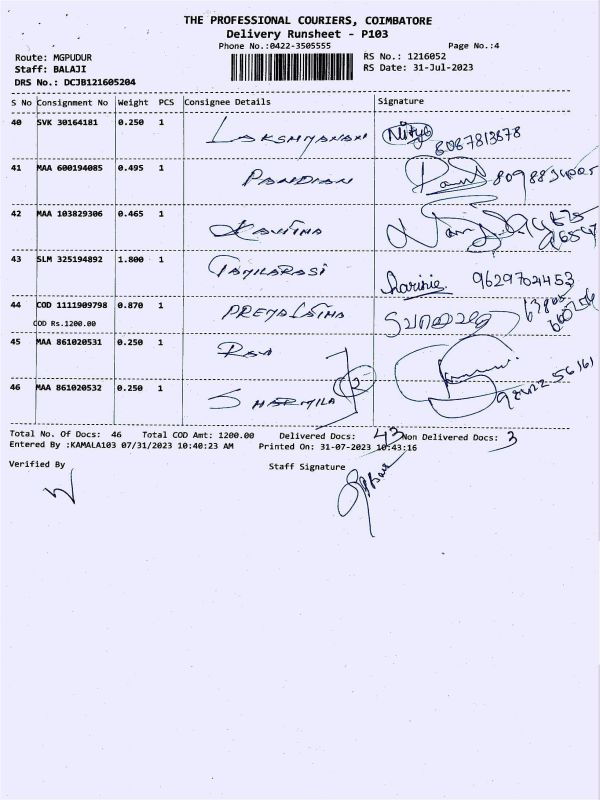 THE PROFESSIONAL COURIERS, COIMBATORE
Delivery Runsheet - P103
Phone No.:0422-3505555 Page No.:4
Route: MGPUDUR RS No.: 1216052
Staff: BALAJI RS Date: 31-Jul-2023
DRS No.: DCJB121605204
S No Consignment No Weight PCS Consignee Details Signature
40 SVK 30164181 0.250 1 LAKSHMANAN Nithya
8067813878
41 MAA 600194085 0.495 1 PANDIAN
42 MAA 103829306 0.465 1 KAVITHA
43 SLM 325194892 1.800 1 TAMILARASI
Harinie 9629702453
44 COD 1111909798 0.870 1 PREMALATHA
COD Rs.1200.00
45 MAA 861020531 0.250 1 RAVI
46 MAA 861020532 0.250 1 SHARMILA 2
98422 56161
Total No. Of Docs: 46 Total COD Amt: 1200.00 Delivered Docs: 43 Non Delivered Docs: 3
Entered By :KAMALA103 07/31/2023 10:40:23 AM Printed On: 31-07-2023 10:43:16
Verified By Staff Signature